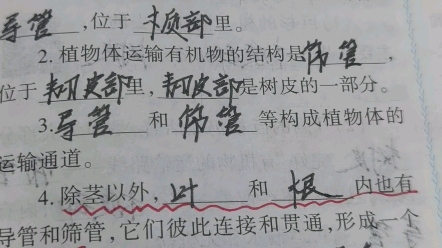 导管,位于木质部里。
2. 植物体运输有机物的结构是筛管,
位于韧皮部里,韧皮部是树皮的一部分。
3. 导管和筛管等构成植物体的
运输通道。
4. 除茎以外,叶和根内也有
导管和筛管,它们彼此连接和贯通,形成一个